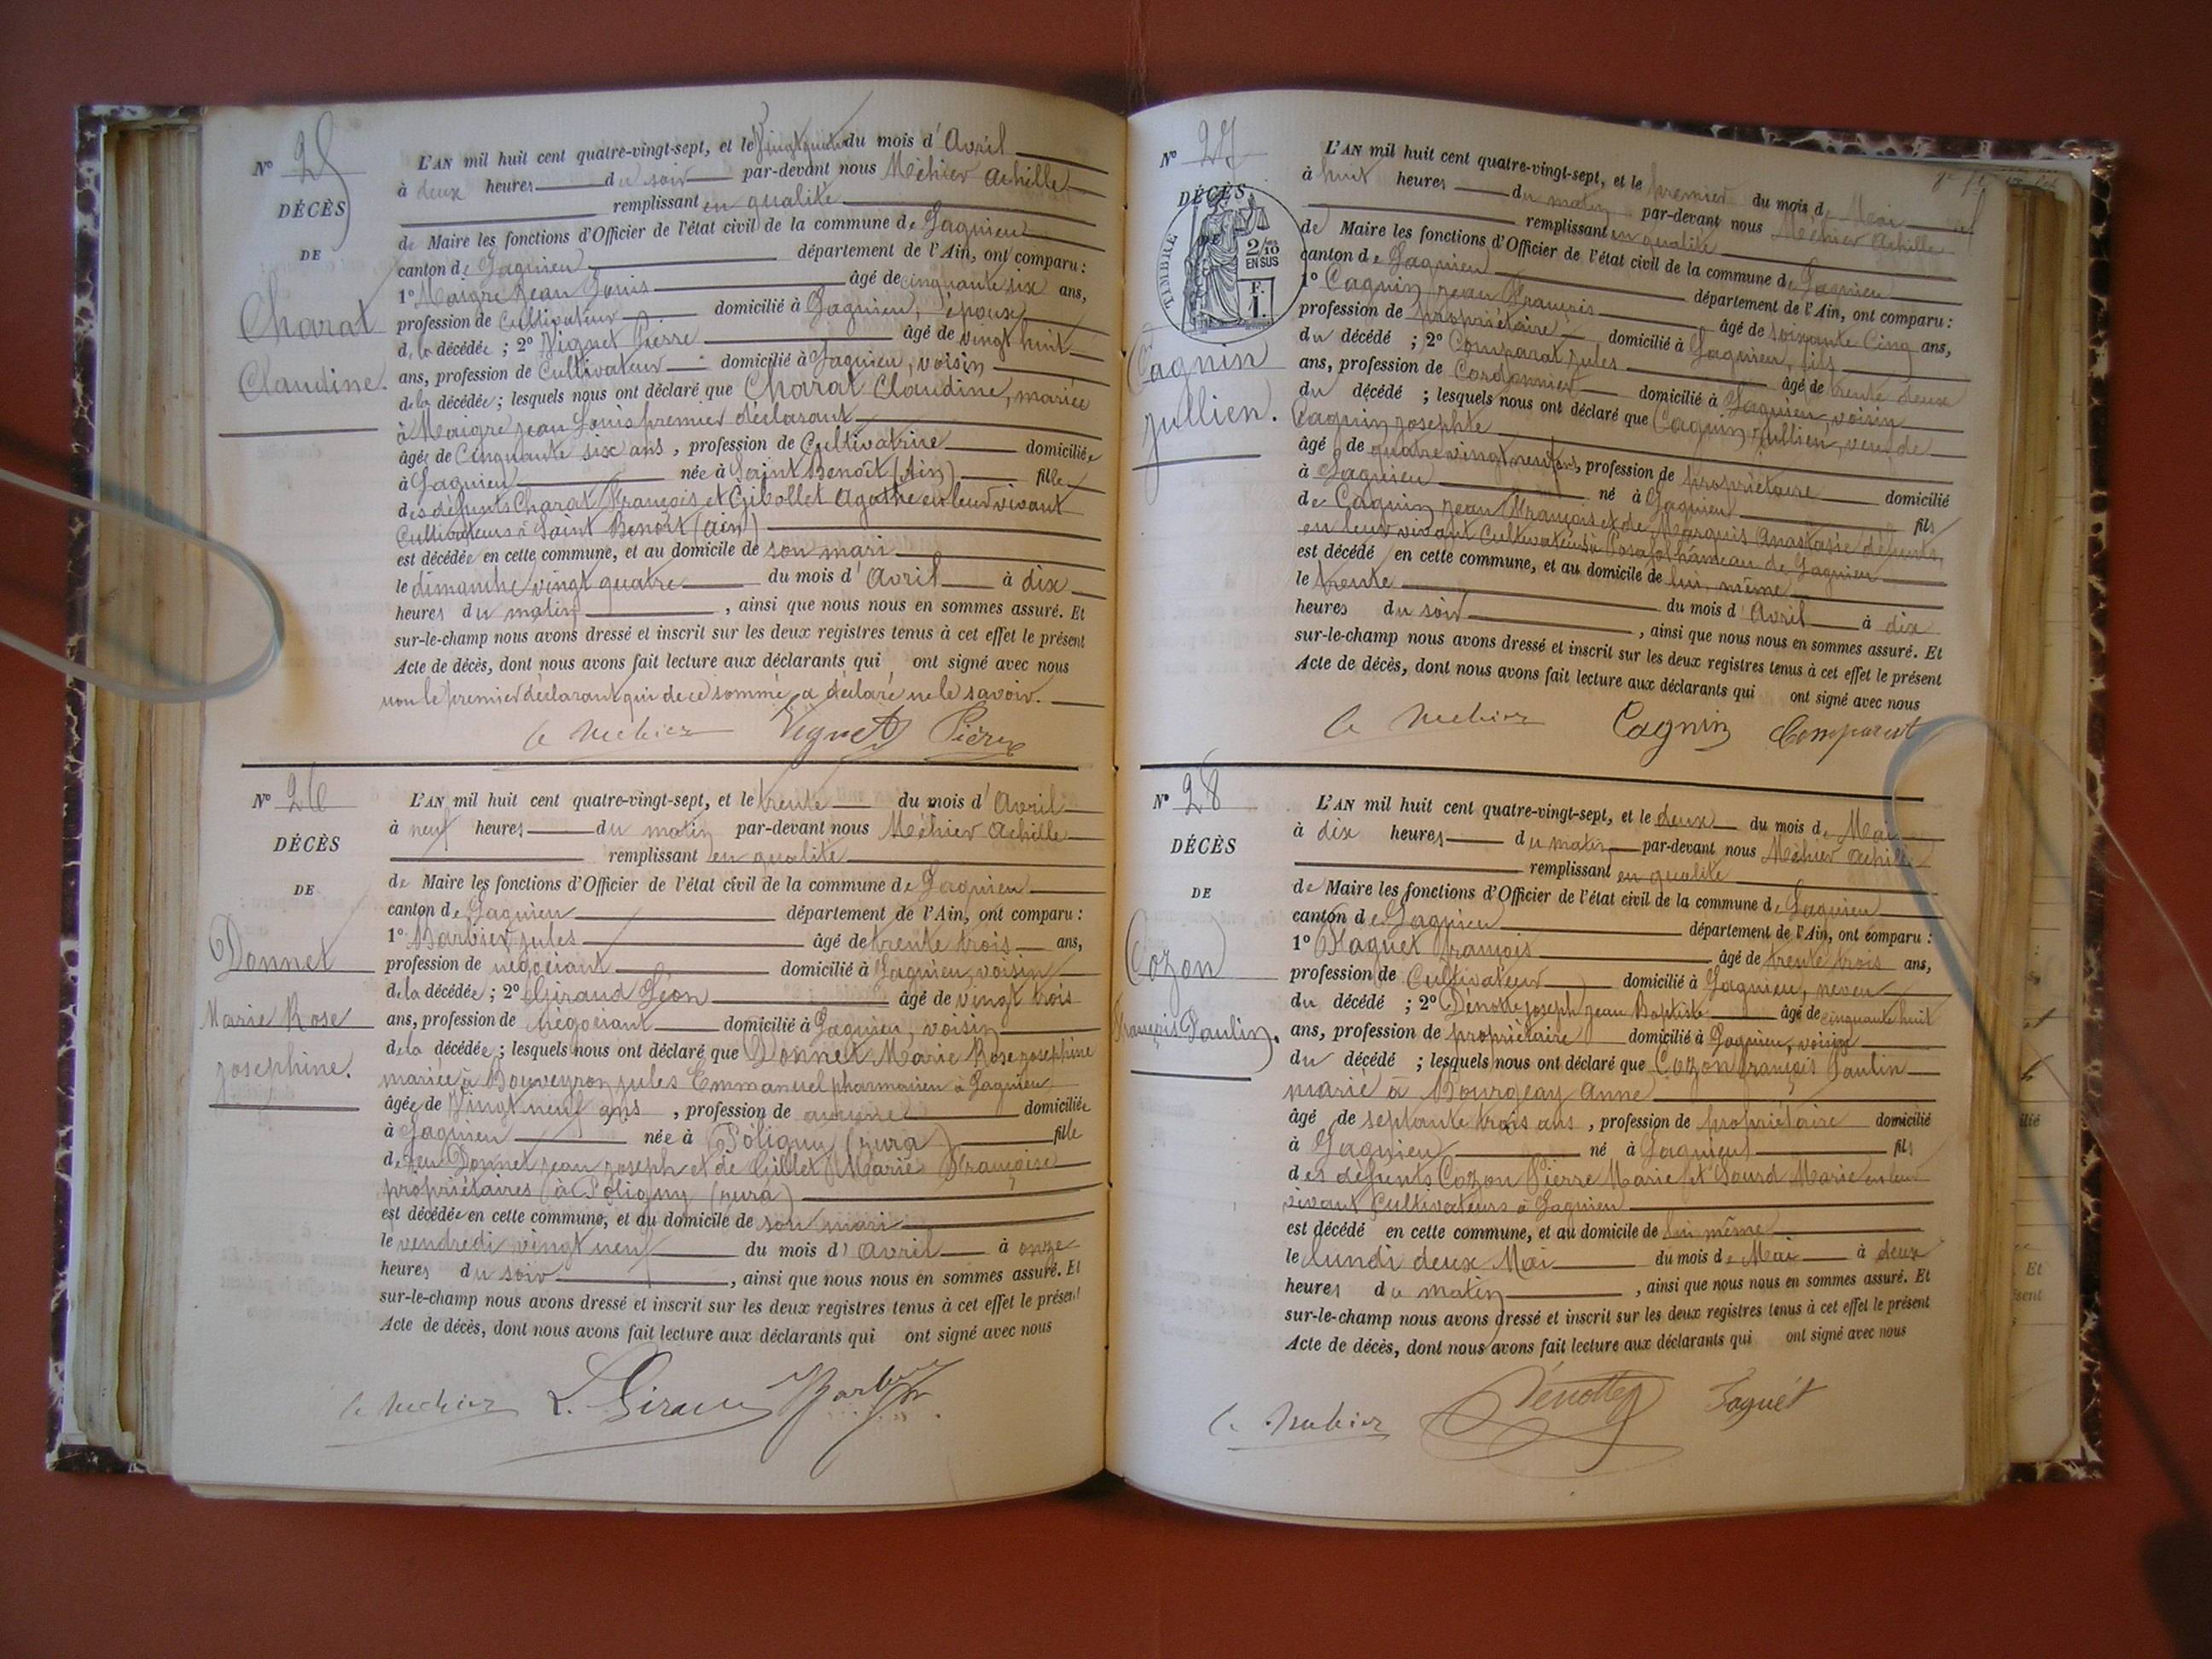 N° 25
DÉCÈS
DE
Charat
Claudine.
L'AN mil huit cent quatre-vingt-sept, et le vingt quatre du mois d'Avril
à deux heures du soir par-devant nous Méhier Achille
remplissant en qualité
de Maire les fonctions d'Officier de l'état civil de la commune de Lagnieu
canton de Lagnieu département de l'Ain, ont comparu :
1° Maigre Jean Louis âgé de cinquante six ans,
profession de Cultivateur domicilié à Lagnieu, époux
de la décédée ; 2° Vignet Pierre âgé de vingt huit
ans, profession de Cultivateur domicilié à Lagnieu, voisin
de la décédée ; lesquels nous ont déclaré que Charat Claudine, mariée
à Maigre Jean Louis premier déclarant
âgée de Cinquante six ans, profession de Cultivatrice domiciliée
à Lagnieu née à Saint Benoît (Ain) fille
des défunts Charat François et Gibollet Agathe en leur vivant
Cultivateurs à Saint Benoît (Ain)
est décédée en cette commune, et au domicile de son mari
le dimanche vingt quatre du mois d'Avril à dix
heures du matin, ainsi que nous nous en sommes assuré. Et
sur-le-champ nous avons dressé et inscrit sur les deux registres tenus à cet effet le présent
Acte de décès, dont nous avons fait lecture aux déclarants qui ont signé avec nous
non le premier déclarant qui de ce sommé a déclaré ne le savoir.
a Mehier Vignet Pierre
N° 26
DÉCÈS
DE
Donnet
Marie Rose
Josephine.
L'AN mil huit cent quatre-vingt-sept, et le trente du mois d'Avril
à neuf heures du matin par-devant nous Méhier Achille
remplissant en qualité
de Maire les fonctions d'Officier de l'état civil de la commune de Lagnieu
canton de Lagnieu département de l'Ain, ont comparu :
1° Barbier Jules âgé de trente trois ans,
profession de négociant domicilié à Lagnieu, voisin
de la décédée ; 2° Giraud Léon âgé de vingt trois
ans, profession de négociant domicilié à Lagnieu, voisin
de la décédée ; lesquels nous ont déclaré que Donnet Marie Rose Josephine
mariée à Bouveyron Jules Emmanuel pharmacien à Lagnieu
âgée de Vingt neuf ans, profession de aucune domiciliée
à Lagnieu née à Poligny (Jura) fille
de feu Donnet Jean Joseph et de Gillet Marie Françoise
propriétaires à Poligny (Jura)
est décédée en cette commune, et au domicile de son mari
le vendredi vingt neuf du mois d'Avril à onze
heures du soir, ainsi que nous nous en sommes assuré. Et
sur-le-champ nous avons dressé et inscrit sur les deux registres tenus à cet effet le présent
Acte de décès, dont nous avons fait lecture aux déclarants qui ont signé avec nous
a Mehier L. Giraud J Barbier
N° 27
DÉCÈS
DE
TIMBRE
2/10
EN SUS
F.
1.
Cagnin
Jullien.
L'AN mil huit cent quatre-vingt-sept, et le premier du mois de Mai
à huit heures du matin par-devant nous Méhier Achille
remplissant en qualité
de Maire les fonctions d'Officier de l'état civil de la commune de Lagnieu
canton de Lagnieu département de l'Ain, ont comparu :
1° Cagnin Jean François âgé de soixante Cinq ans,
profession de propriétaire domicilié à Lagnieu, fils
du décédé ; 2° Comparat Jules âgé de trente deux
ans, profession de Cordonnier domicilié à Lagnieu, voisin
du décédé ; lesquels nous ont déclaré que Cagnin Jullien, veuf de
Cagnin Josephte
âgé de quatre vingt neuf ans, profession de propriétaire domicilié
à Lagnieu né à Lagnieu fils
de Cagnin Jean François et de Marquis Anastasie défunts,
en leur vivant Cultivateurs à Posafol hameau de Lagnieu
est décédé en cette commune, et au domicile de lui même
le trente du mois d'Avril à dix
heures du soir, ainsi que nous nous en sommes assuré. Et
sur-le-champ nous avons dressé et inscrit sur les deux registres tenus à cet effet le présent
Acte de décès, dont nous avons fait lecture aux déclarants qui ont signé avec nous
a Mehier Cagnin Comparat
N° 28
DÉCÈS
DE
Cozon
François Paulin.
L'AN mil huit cent quatre-vingt-sept, et le deux du mois de Mai
à dix heures du matin par-devant nous Méhier Achille
remplissant en qualité
de Maire les fonctions d'Officier de l'état civil de la commune de Lagnieu
canton de Lagnieu département de l'Ain, ont comparu :
1° François âgé de trente trois ans,
profession de Cultivateur domicilié à Lagnieu, neveu
du décédé ; 2° Dénotte Joseph Jean Baptiste âgé de cinquante huit
ans, profession de propriétaire domicilié à Lagnieu, voisin
du décédé ; lesquels nous ont déclaré que Cozon François Paulin
marié à Bourgeay Anne
âgé de septante trois ans, profession de propriétaire domicilié
à Lagnieu né à Lagnieu fils
des défunts Cozon Pierre Marie et Sourd Marie en leur
vivant Cultivateurs à Lagnieu
est décédé en cette commune, et au domicile de lui même
le lundi deux Mai du mois de Mai à deux
heures du matin, ainsi que nous nous en sommes assuré. Et
sur-le-champ nous avons dressé et inscrit sur les deux registres tenus à cet effet le présent
Acte de décès, dont nous avons fait lecture aux déclarants qui ont signé avec nous
a Mehier Dénotte